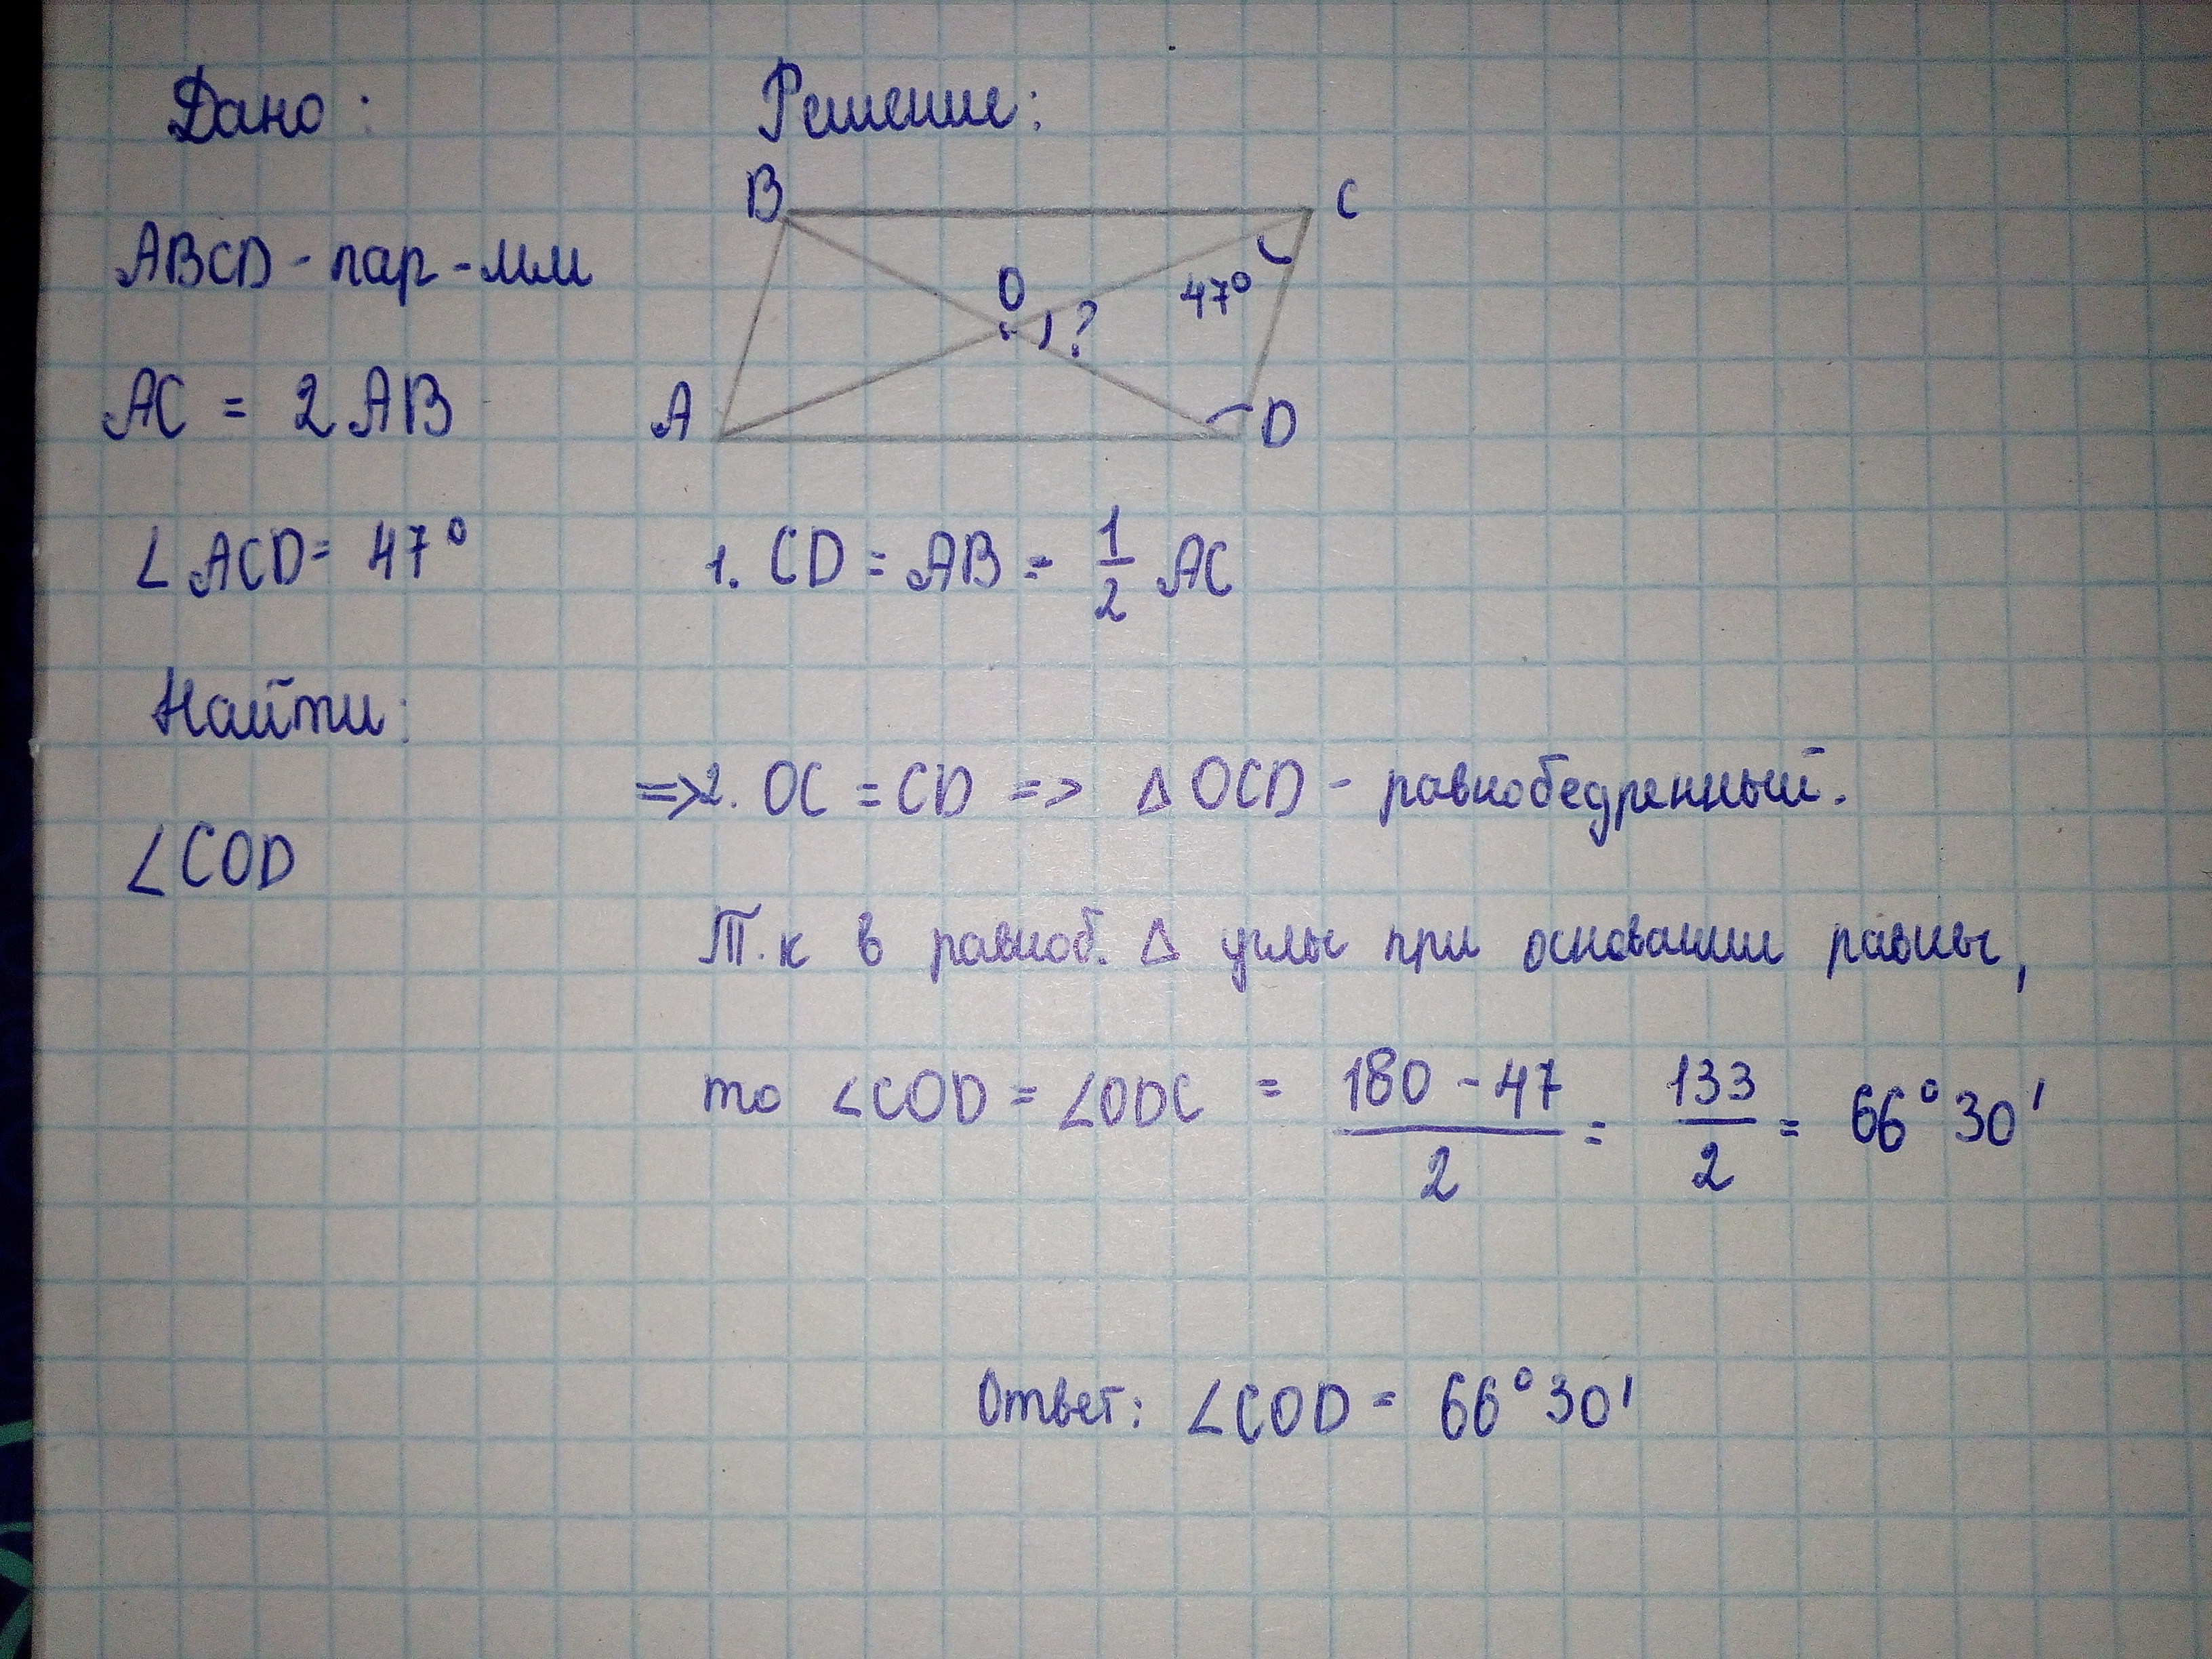 Дано:
ABCD - пар-мм
AC = 2AB
∠ACD = 47°
Найти:
∠COD
Решение:
B
C
O
?
47°
A
D
1. CD = AB = 1/2 AC
=> 2. OC = CD => Δ OCD - равнобедренный.
Т.к в равноб. Δ углы при основании равны,
то ∠COD = ∠ODC = (180 - 47)/2 = 133/2 = 66°30'
Ответ: ∠COD = 66°30'